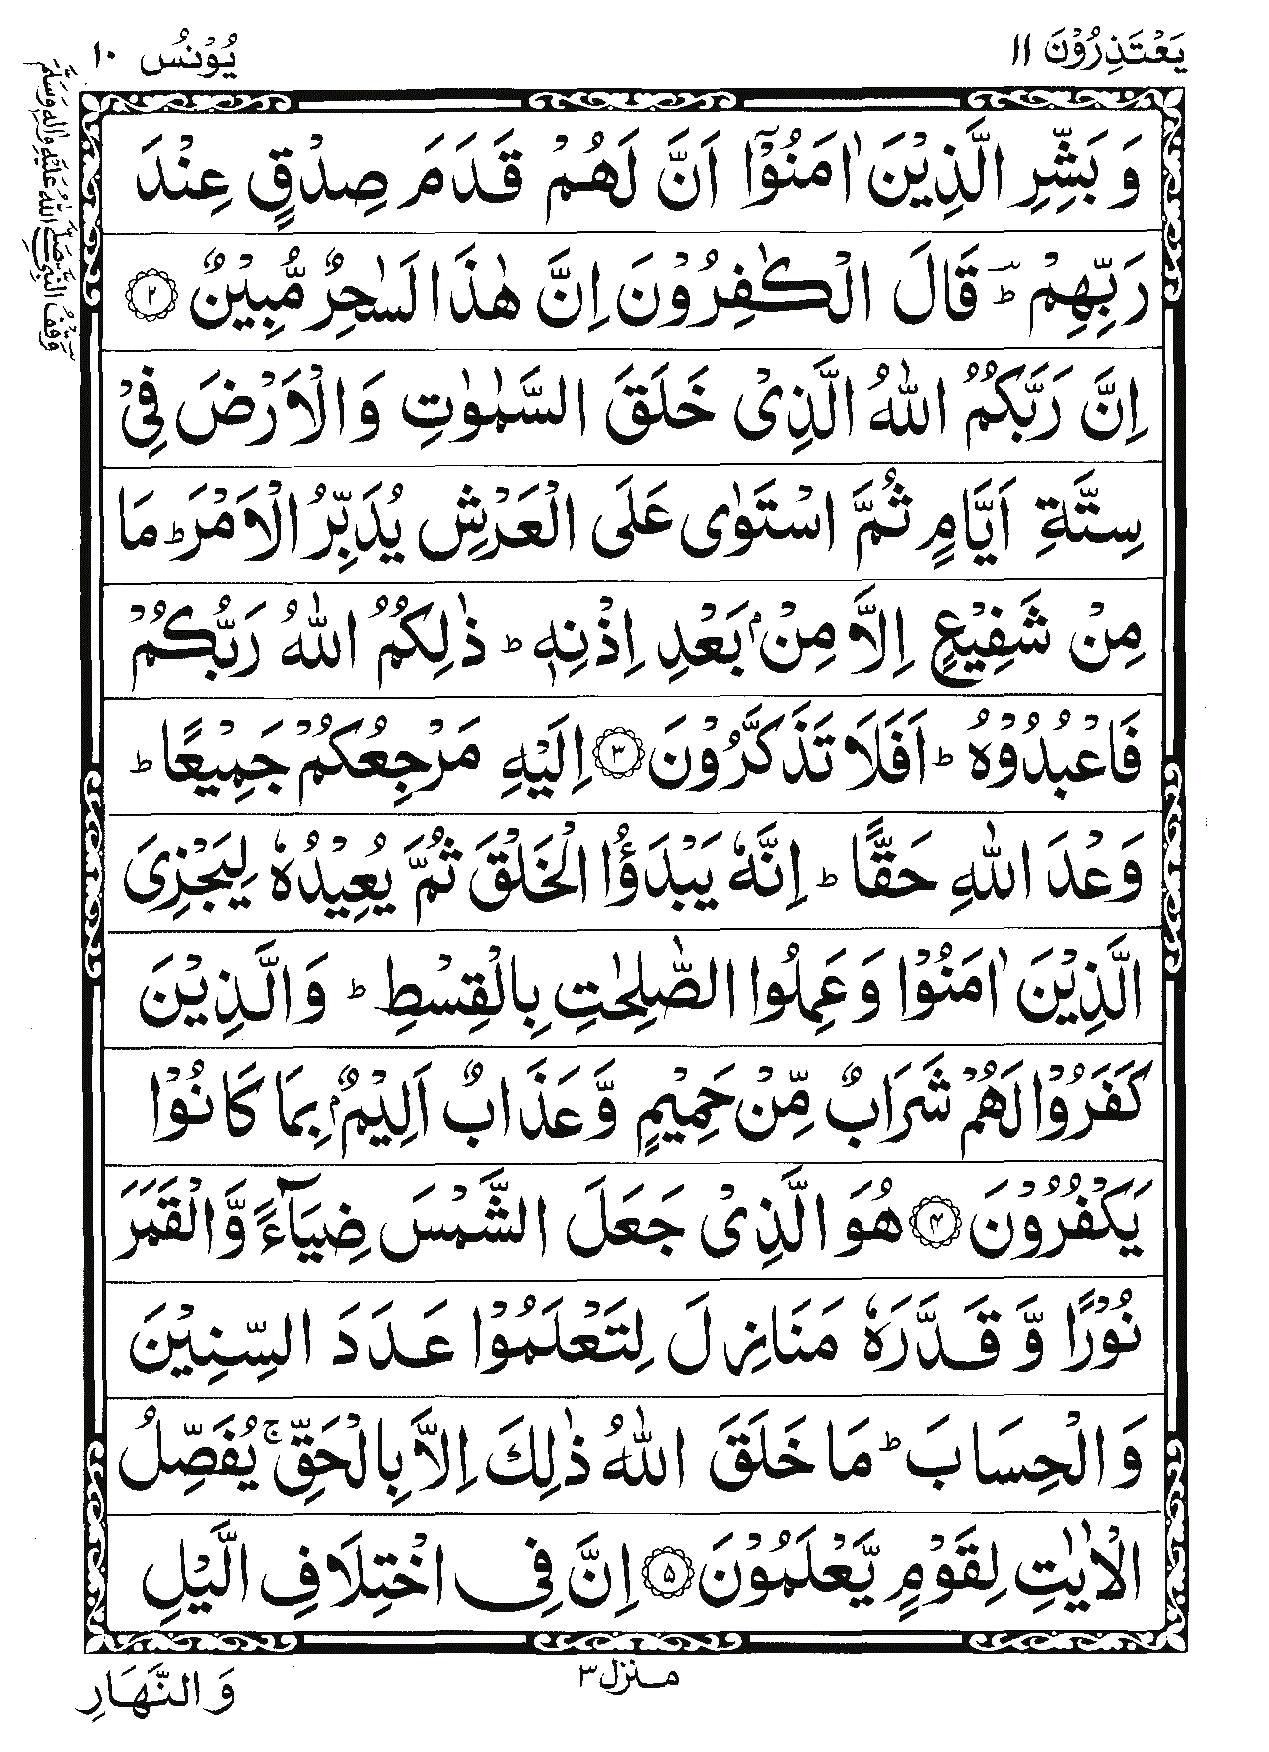 يَعْتَذِرُوْنَ ١١
يُوْنُس ١٠
وَقْفُ النَّبِيِّ صَلَّى اللّٰهُ عَلَيْهِ وَاٰلِهٖ وَسَلَّمَ
وَ بَشِّرِ الَّذِيْنَ اٰمَنُوْۤا اَنَّ لَهُمْ قَدَمَ صِدْقٍ عِنْدَ
رَبِّهِمْ ؕ قَالَ الْكٰفِرُوْنَ اِنَّ هٰذَا لَسٰحِرٌ مُّبِيْنٌ ۝۲
اِنَّ رَبَّكُمُ اللّٰهُ الَّذِیْ خَلَقَ السَّمٰوٰتِ وَالْاَرْضَ فِیْ
سِتَّةِ اَيَّامٍ ثُمَّ اسْتَوٰى عَلَى الْعَرْشِ يُدَبِّرُ الْاَمْرَ ؕ مَا
مِنْ شَفِيْعٍ اِلَّا مِنْۢ بَعْدِ اِذْنِهٖ ؕ ذٰلِكُمُ اللّٰهُ رَبُّكُمْ
فَاعْبُدُوْهُ ؕ اَفَلَا تَذَكَّرُوْنَ ۝۳ اِلَيْهِ مَرْجِعُكُمْ جَمِيْعًا ؕ
وَعْدَ اللّٰهِ حَقًّا ؕ اِنَّهٗ يَبْدَؤُا الْخَلْقَ ثُمَّ يُعِيْدُهٗ لِيَجْزِیَ
الَّذِيْنَ اٰمَنُوْا وَعَمِلُوا الصّٰلِحٰتِ بِالْقِسْطِ ؕ وَالَّذِيْنَ
كَفَرُوْا لَهُمْ شَرَابٌ مِّنْ حَمِيْمٍ وَّعَذَابٌ اَلِيْمٌۢ بِمَا كَانُوْا
يَكْفُرُوْنَ ۝۴ هُوَ الَّذِیْ جَعَلَ الشَّمْسَ ضِيَآءً وَّالْقَمَرَ
نُوْرًا وَّ قَدَّرَهٗ مَنَازِلَ لِتَعْلَمُوْا عَدَدَ السِّنِيْنَ
وَ الْحِسَابَ ؕ مَا خَلَقَ اللّٰهُ ذٰلِكَ اِلَّا بِالْحَقِّ ۚ يُفَصِّلُ
الْاٰيٰتِ لِقَوْمٍ يَّعْلَمُوْنَ ۝۵ اِنَّ فِی اخْتِلَافِ الَّيْلِ
منزل ٣
وَ النَّهَارِ